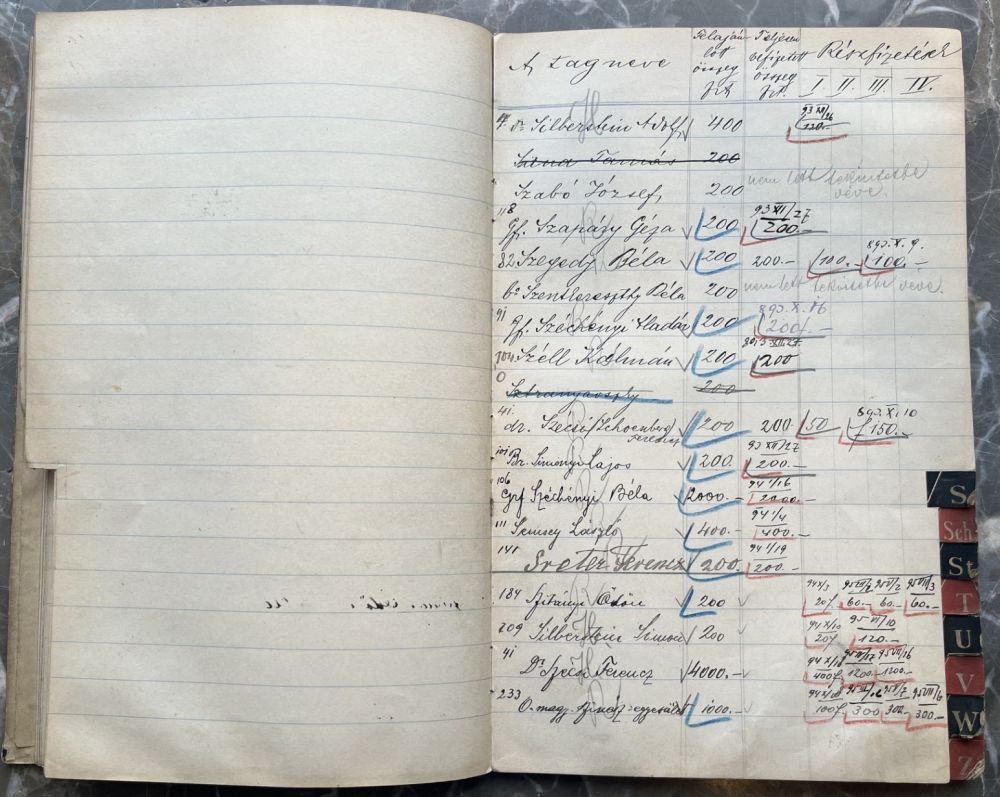 A tag neve Felaján lott összeg frt Teljesen befizetett összeg frt. Részfizetések
I II. III. IV.
4 dr Silberstein Adolf 400 93 XII/26 120.-
Tamás 200
Szabó József 200 nem lett tekintetbe véve.
118 Gf. Szapáry Géza 200 93 XII/27 200.-
82 Szegedy Béla 200 200.- 100.- 893. X. 9. 100.-
br Szentkereszthy Béla 200 nem lett tekintetbe véve.
91 Gf. Széchényi Aladár 200 893. X. 16 200.-
104 Széll Kálmán 200 893 XII 27. 200
0 200
41. dr. Szécsi/Schoenberg Ferencz 200 200 50 893. X. 10 150.-
101 Br. Simonyi Lajos 200. 93 XII/27 200.-
106 Grf Széchényi Béla 2000.- 94 1/16 2000.-
111 Semsey László 400.- 94 1/4 400.-
141 Sréter Ferencz 200. 94 1/19 200.-
184 Szitányi Ödön 200 94 X/3 20f. 60.- 60.- 60.-
209 Silberstein Simon 200 94 X/10 20f 95 VI/10 120.-
41 Dr Szécsi Ferencz 4000.- 400f. 1200.- 1200.-
233 O. magy. 1000.- 94 X/10 100f. 300 300. 300.-
S
Sch
St
T
U
V
W
Z